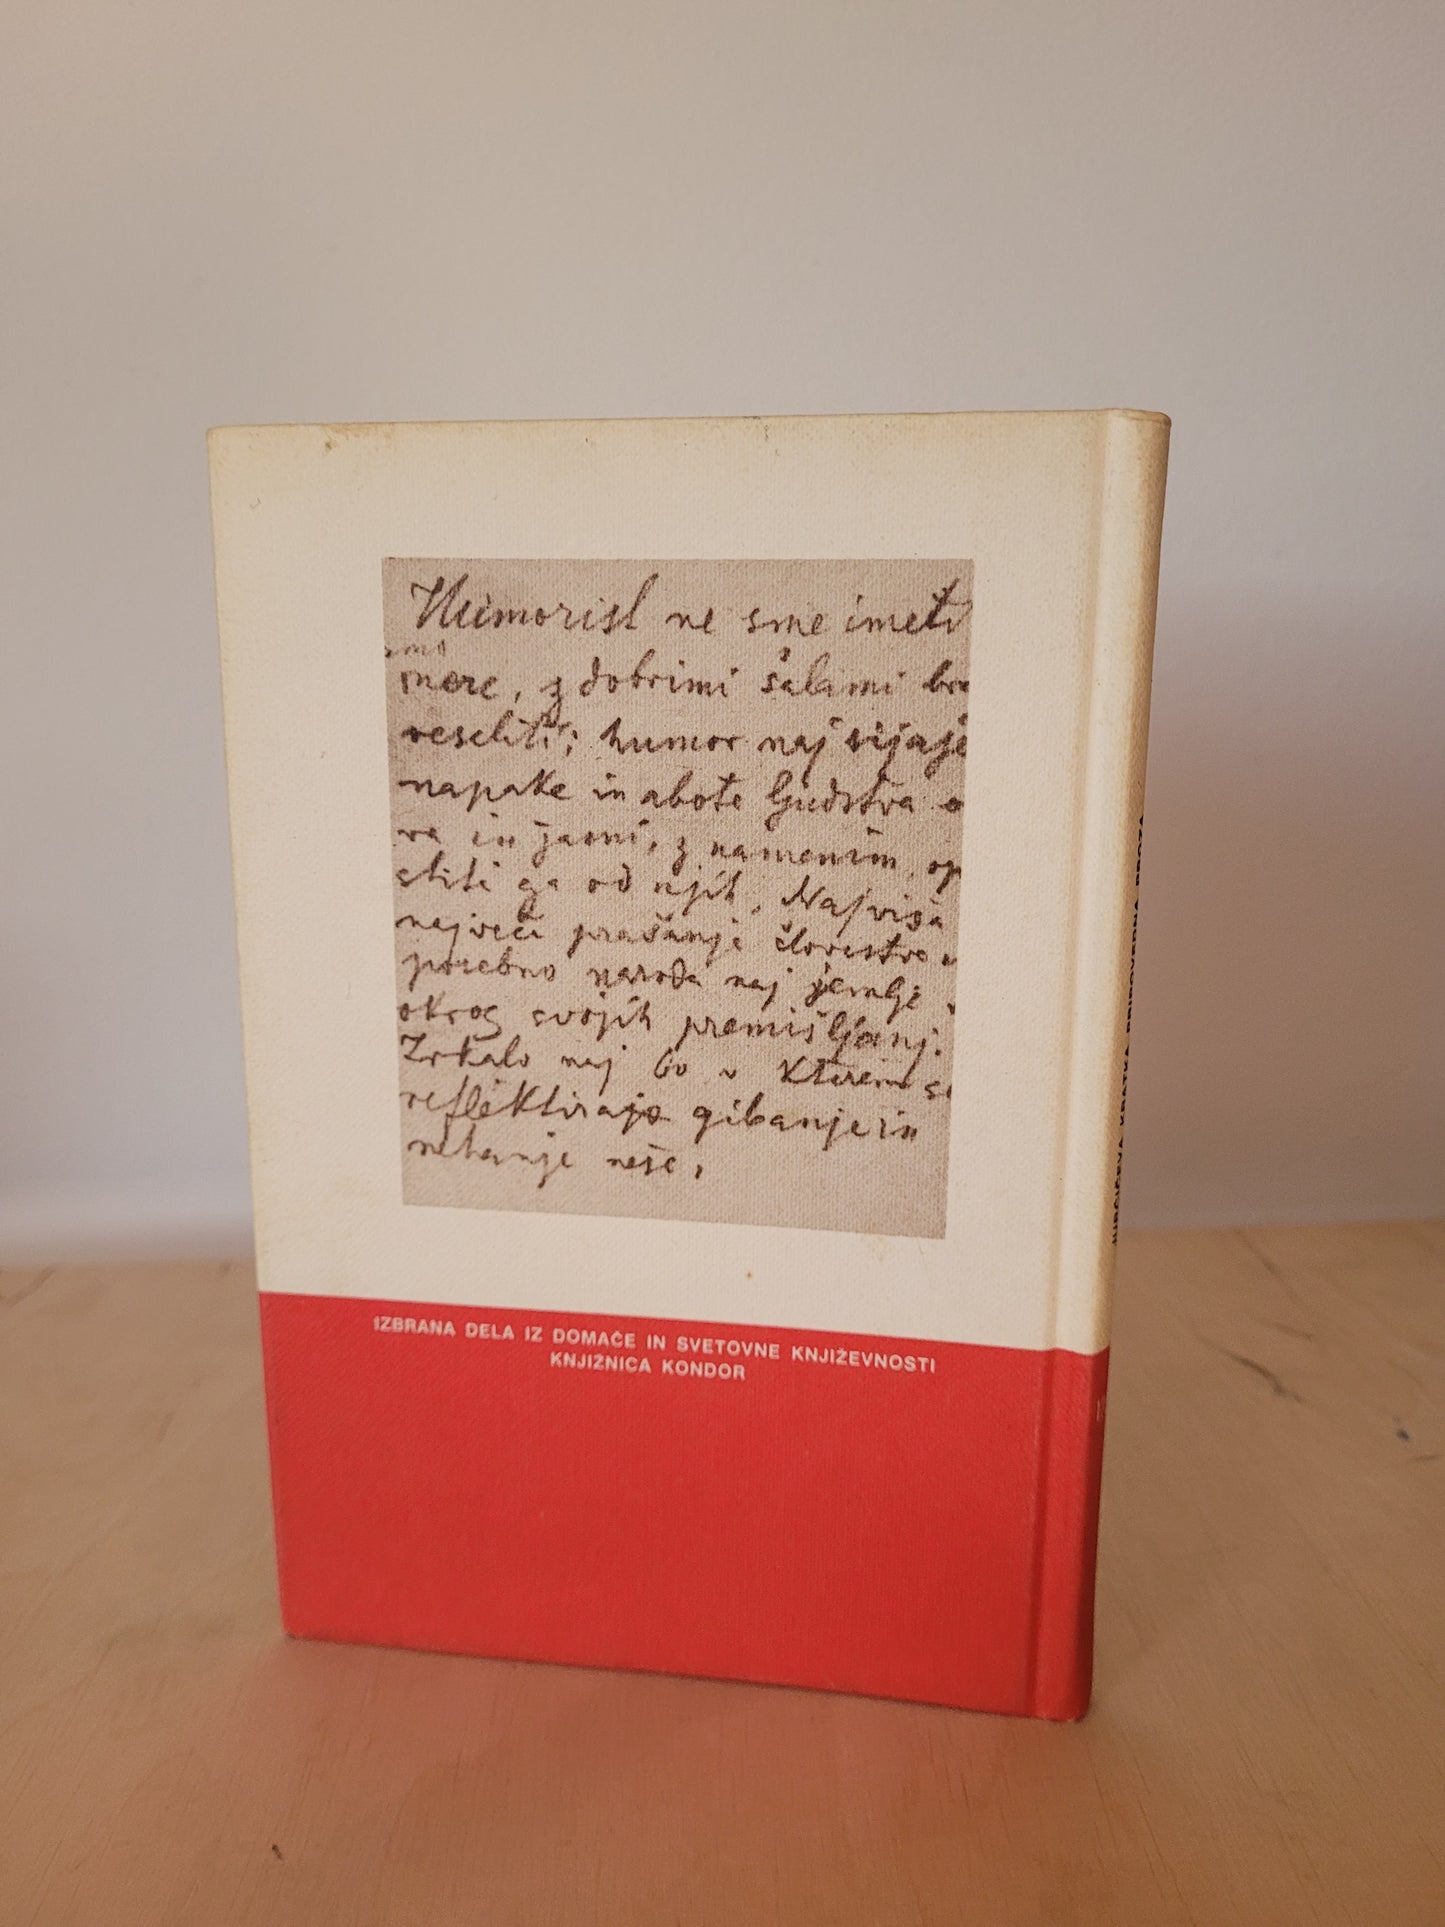 Humorist ne sme imeti
samo
mere, z dobrimi šalami bra
veseliti; humor naj sijaje
napake in abote ljudstva o
va in jasni, z namenim, op
stiti ga od njih. Najviša
največa prašanja človestva
posebno naroda naj jemlje v
okrog svojih premišljanj.
Zrkalo naj bo v kterem se
reflektiraje gibanje in
nehanje naše,
IZBRANA DELA IZ DOMAČE IN SVETOVNE KNJIŽEVNOSTI
KNJIŽNICA KONDOR
JURČIČEVA KRATKA PRIPOVEDNA PROZA